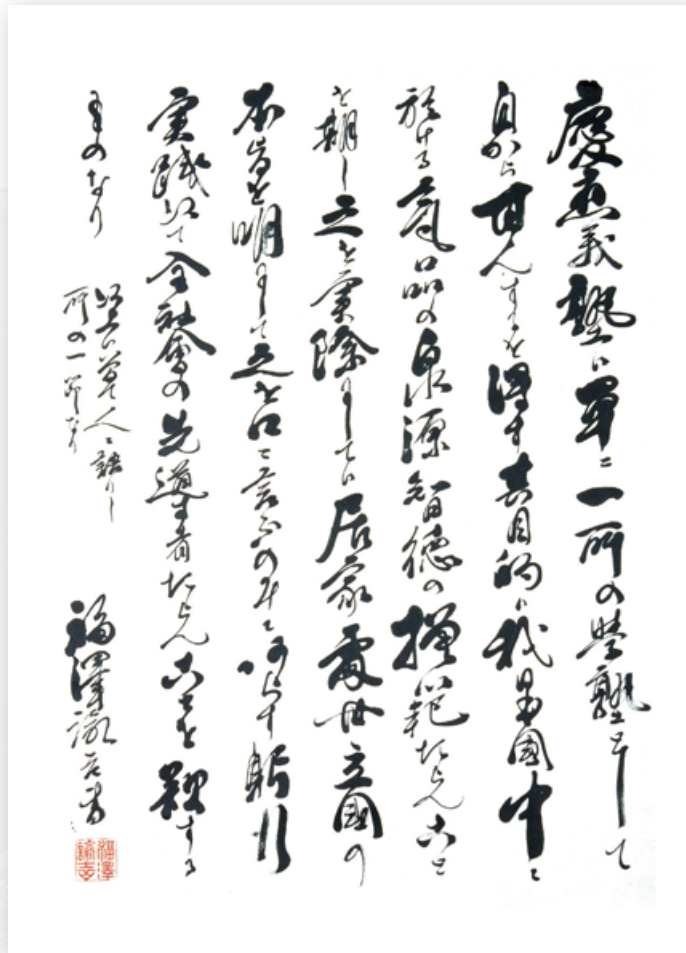 慶應義塾ハ單ニ一所の學塾として
自から甘んするを得す其目的ハ我日本國中ニ
於ける氣品の泉源智徳の模範たらんこと
を期し之を實際にしてハ居家處世立國の
本旨を明にして之を口ニ言ふのみニあらす躬行
実踐以て全社會の先導者たらんことを欲する
ものなり
以上ハ曾て人ニ語りし
所の一節なり
福澤諭吉書
福澤
諭吉